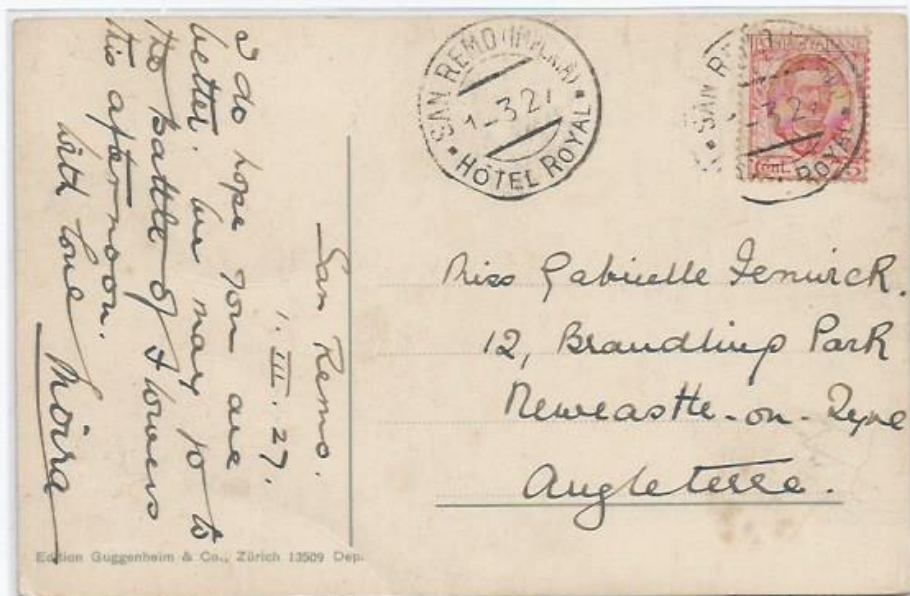 San Remo.
1. III. 27.
I do hope you are
better. We may go to
the Battle of Flowers
this afternoon.
With love Moira
SAN REMO (IMPERIA)
1-3.27
HÔTEL ROYAL
SAN REMO
ROYAL
Miss Gabrielle Fenwick.
12, Brandling Park
Newcastle-on-Tyne
Angleterre.
Edition Guggenheim & Co., Zürich 13509 Dep.